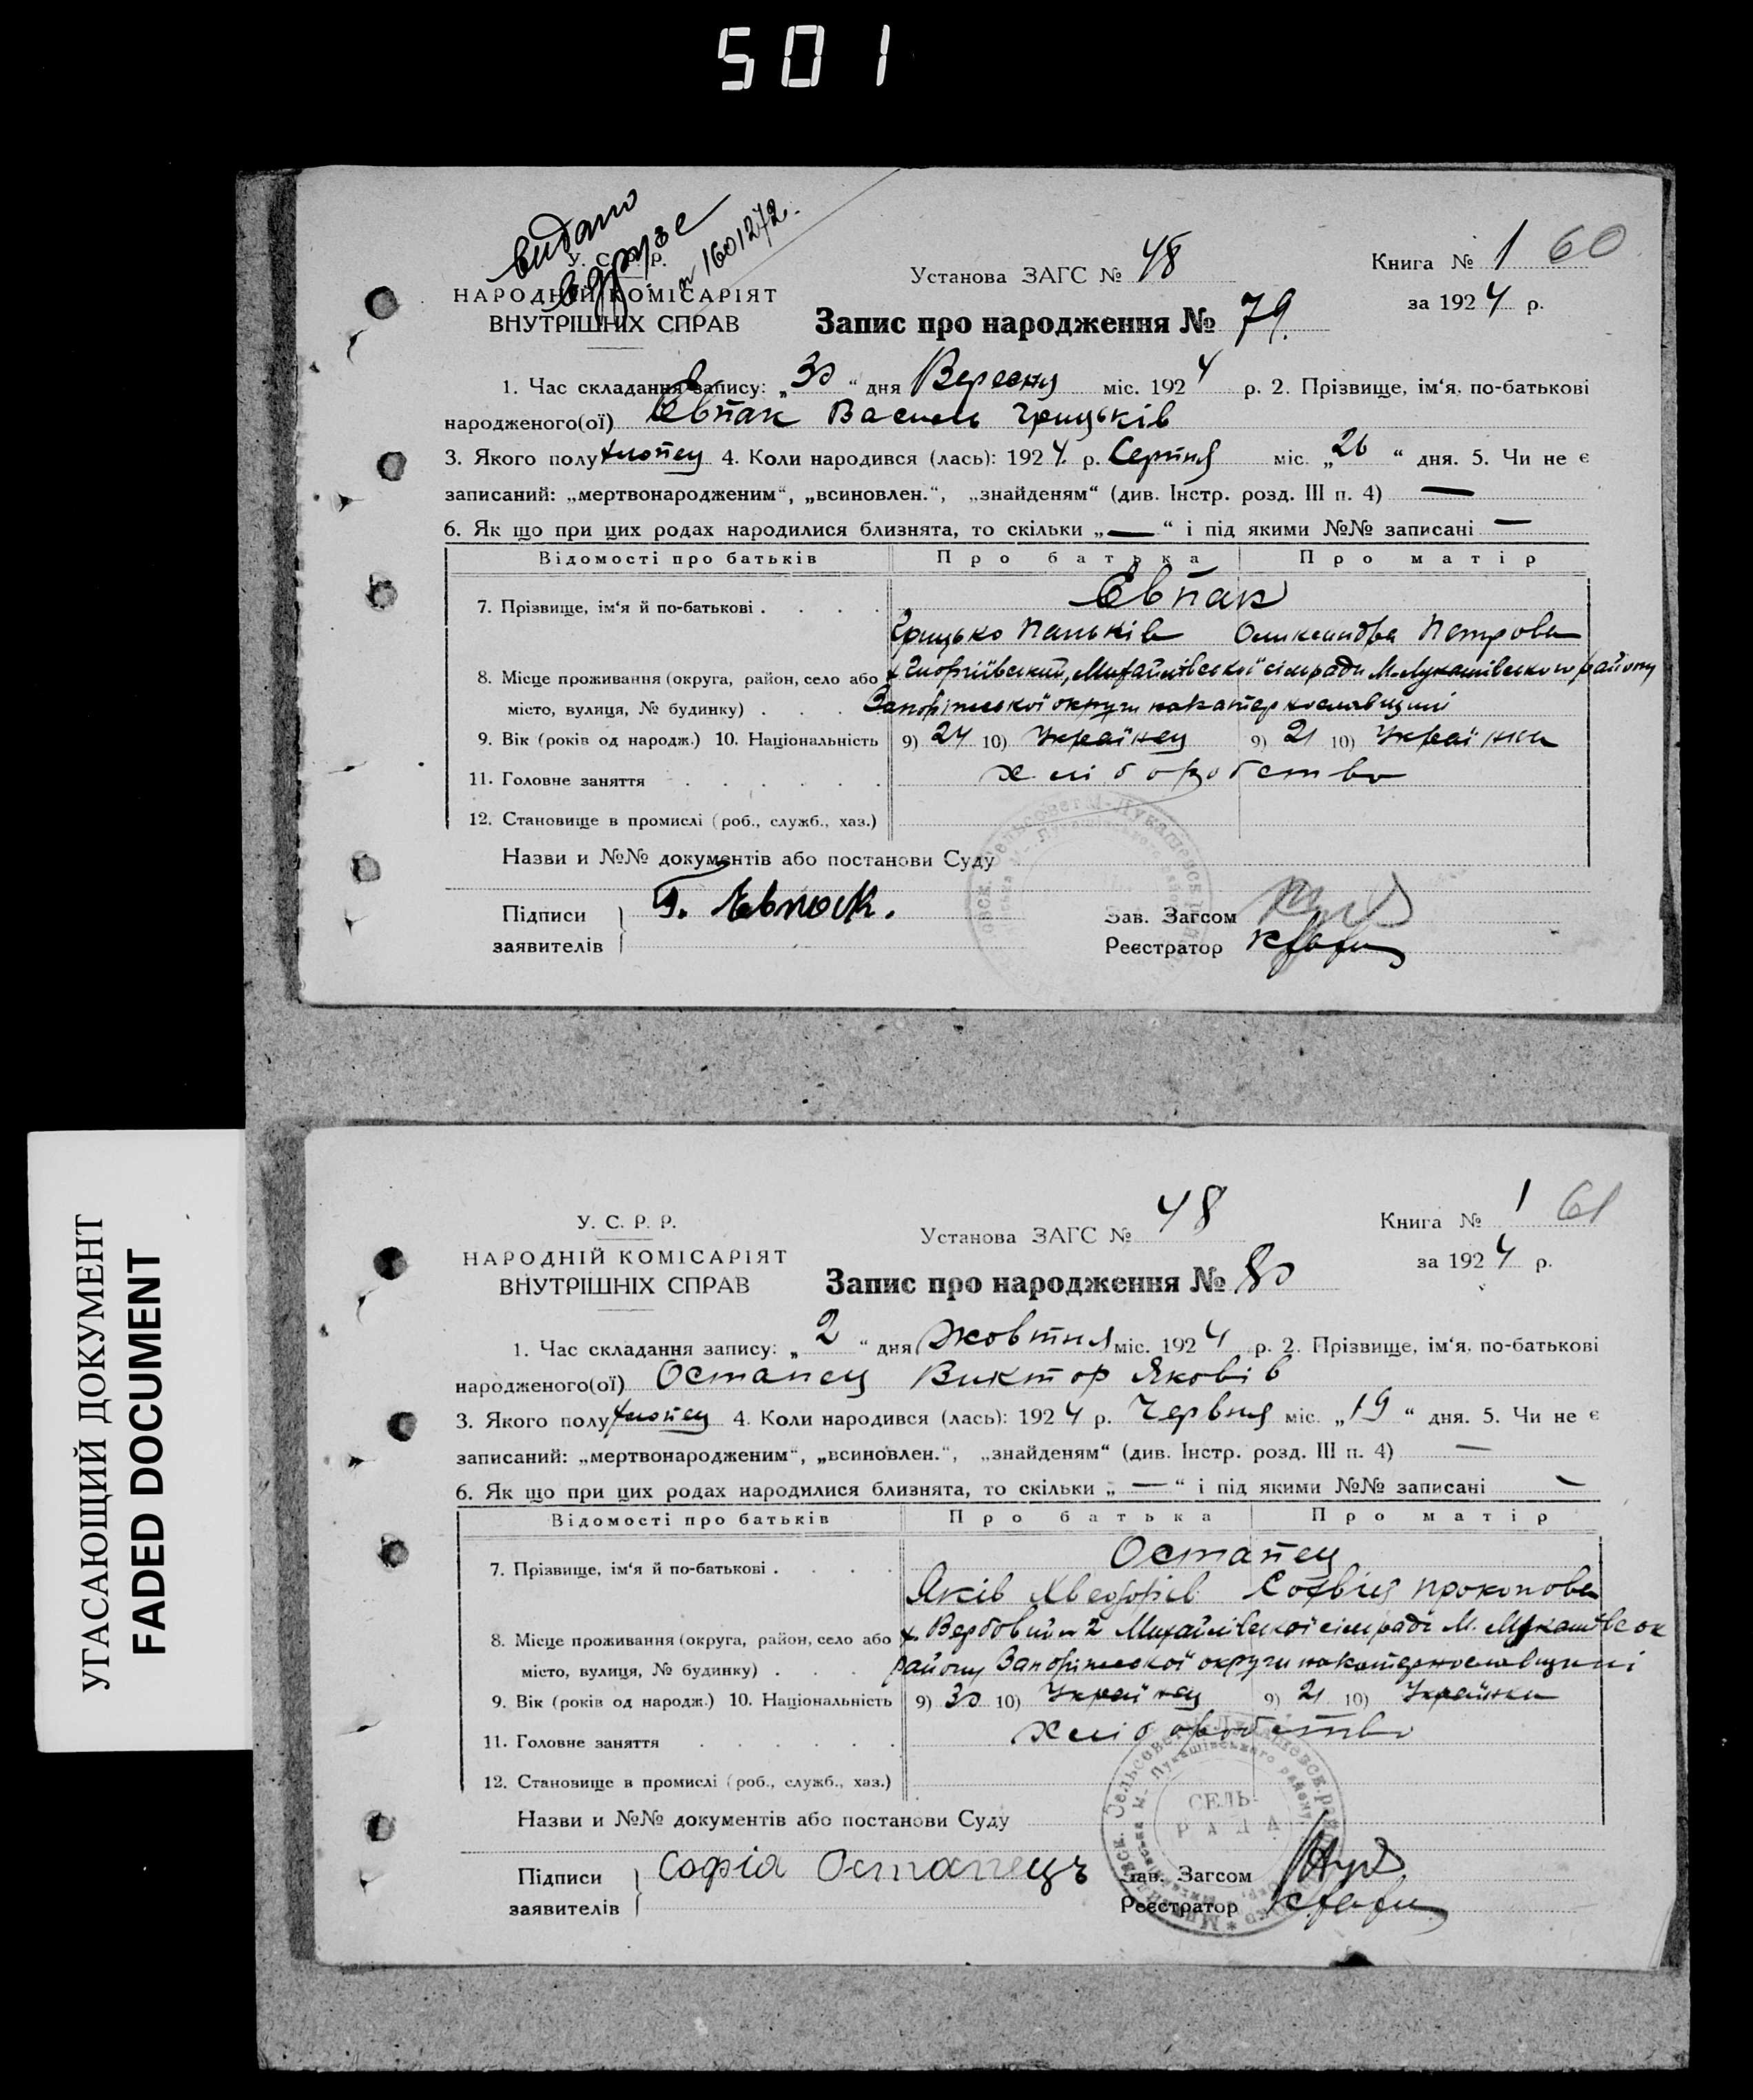 501
видано
вдрузе
№ 1601272.
У. С. Р. Р.
НАРОДНІЙ КОМІСАРІЯТ
ВНУТРІШНІХ СПРАВ
Установа ЗАГС № 48
Книга № 1 60
за 1924 р.
Запис про народження № 79.
1. Час складання запису: „30“ дня Вересня міс. 1924 р. 2. Прізвище, ім‘я, по-батькові
народженого(ої) Євпак Василь Грицьків
3. Якого полу хлопец 4. Коли народився (лась): 1924 р. Серпня міс. „26“ дня. 5. Чи не є
записаний: „мертвонародженим“, „всиновлен.“, „знайденям“ (див. Інстр. розд. III п. 4) —
6. Як що при цих родах народилися близнята, то скільки „—“ і під якими №№ записані —
Відомості про батьків Про батька Про матір
7. Прізвище, ім‘я й по-батькові . . . . Євпак
Грицько Паньків Олександра Петрова
8. Місце проживання (округа, район, село або х. Михайлівської сільради М-Лукашівського району
місто, вулиця, № будинку) . . . Запоріжської округи на Катеринославщині
9. Вік (років од народж.) 10. Національність 9) 24 10) Українец 9) 21 10) Українка
11. Головне заняття . . . . . . хліборобство
12. Становище в промислі (роб., служб., хаз.)
Назви и №№ документів або постанови Суду
Підписи Г. Євпак.
заявителів
Зав. Загсом
Реєстратор
УГАСАЮЩИЙ ДОКУМЕНТ
FADED DOCUMENT
У. С. Р. Р.
НАРОДНІЙ КОМІСАРІЯТ
ВНУТРІШНІХ СПРАВ
Установа ЗАГС № 48
Книга № 1 61
за 1924 р.
Запис про народження № 80
1. Час складання запису: „2“ дня Жовтня міс. 1924 р. 2. Прізвище, ім‘я, по-батькові
народженого(ої) Остапец Виктор Яковів
3. Якого полу хлопец 4. Коли народився (лась): 1924 р. Червня міс. „19“ дня. 5. Чи не є
записаний: „мертвонародженим“, „всиновлен.“, „знайденям“ (див. Інстр. розд. III п. 4) —
6. Як що при цих родах народилися близнята, то скільки „—“ і під якими №№ записані —
Відомості про батьків Про батька Про матір
7. Прізвище, ім‘я й по-батькові . . . . Остапец
Яків Хведорів Софвія Прокопова
8. Місце проживання (округа, район, село або х. Вербовий № 2 Михайлівскої сільради М. Лукашівськ
місто, вулиця, № будинку) . . . району Запоріжської округи на Катеринославщині
9. Вік (років од народж.) 10. Національність 9) 30 10) Українец 9) 21 10) Українка
11. Головне заняття . . . . . . хліборобство
12. Становище в промислі (роб., служб., хаз.)
СЕЛЬ-
РАДА
Назви и №№ документів або постанови Суду
Підписи Софіа Остапецъ
заявителів
Зав. Загсом
Реєстратор